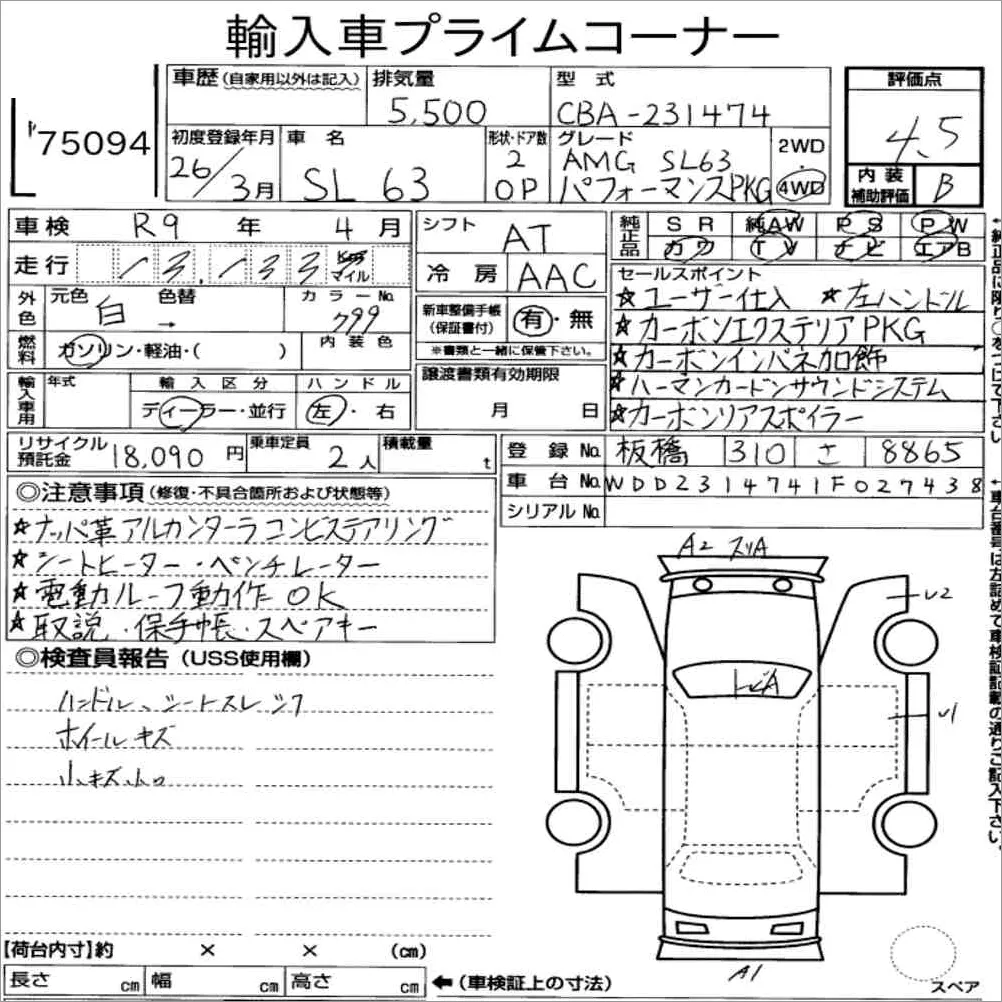 輸入車プライムコーナー
75094
車歴(自家用以外は記入)
排気量
5,500
型式
CBA-231474
評価点
4.5
初度登録年月
26/3月
車名
SL 63
形状・ドア数
2
OP
グレード
AMG SL63
パフォーマンスPKG
2WD
・
4WD
内装
補助評価
B
車検 R9 年 4 月
シフト
AT
純正品
SR 純AW PS PW
カワ TV ナビ エアB
走行 13,133 マイル
冷房 AAC
セールスポイント
☆ユーザー仕入 ☆左ハンドル
☆カーボンエクステリアPKG
☆カーボンインパネ加飾
☆ハーマンカードンサウンドシステム
☆カーボンリアスポイラー
外色
元色 白 色替 →
カラーNo.
799
新車整備手帳
(保証書付)
有・無
※書類と一緒に保管下さい。
燃料
ガソリン・軽油・( )
内装色
輸入車用
年式
輸入区分
ディーラー・並行
ハンドル
左・右
譲渡書類有効期限
月 日
リサイクル
預託金 18,090 円
乗車定員
2人
積載量
t
登録No. 板橋 310 さ 8865
車台No. WDD2314741F027438
シリアルNo.
◎注意事項(修復・不具合箇所および状態等)
☆ナッパ革アルカンターラコンビステアリング
☆シートヒーター・ベンチレーター
☆電動ルーフ動作OK
☆取説・保手帳・スペアキー
◎検査員報告(USS使用欄)
ハンドル、シートスレ シワ
ホイールキズ
小キズ小凹
A2 スリA
U2
トビA
U1
A1
スペア
【荷台内寸】約 × × (cm)
長さ cm 幅 cm 高さ cm
←(車検証上の寸法)
↑純正品に限り○をつけて下さい
↑車台番号は左詰めで車検証記載の通りご記入下さい。